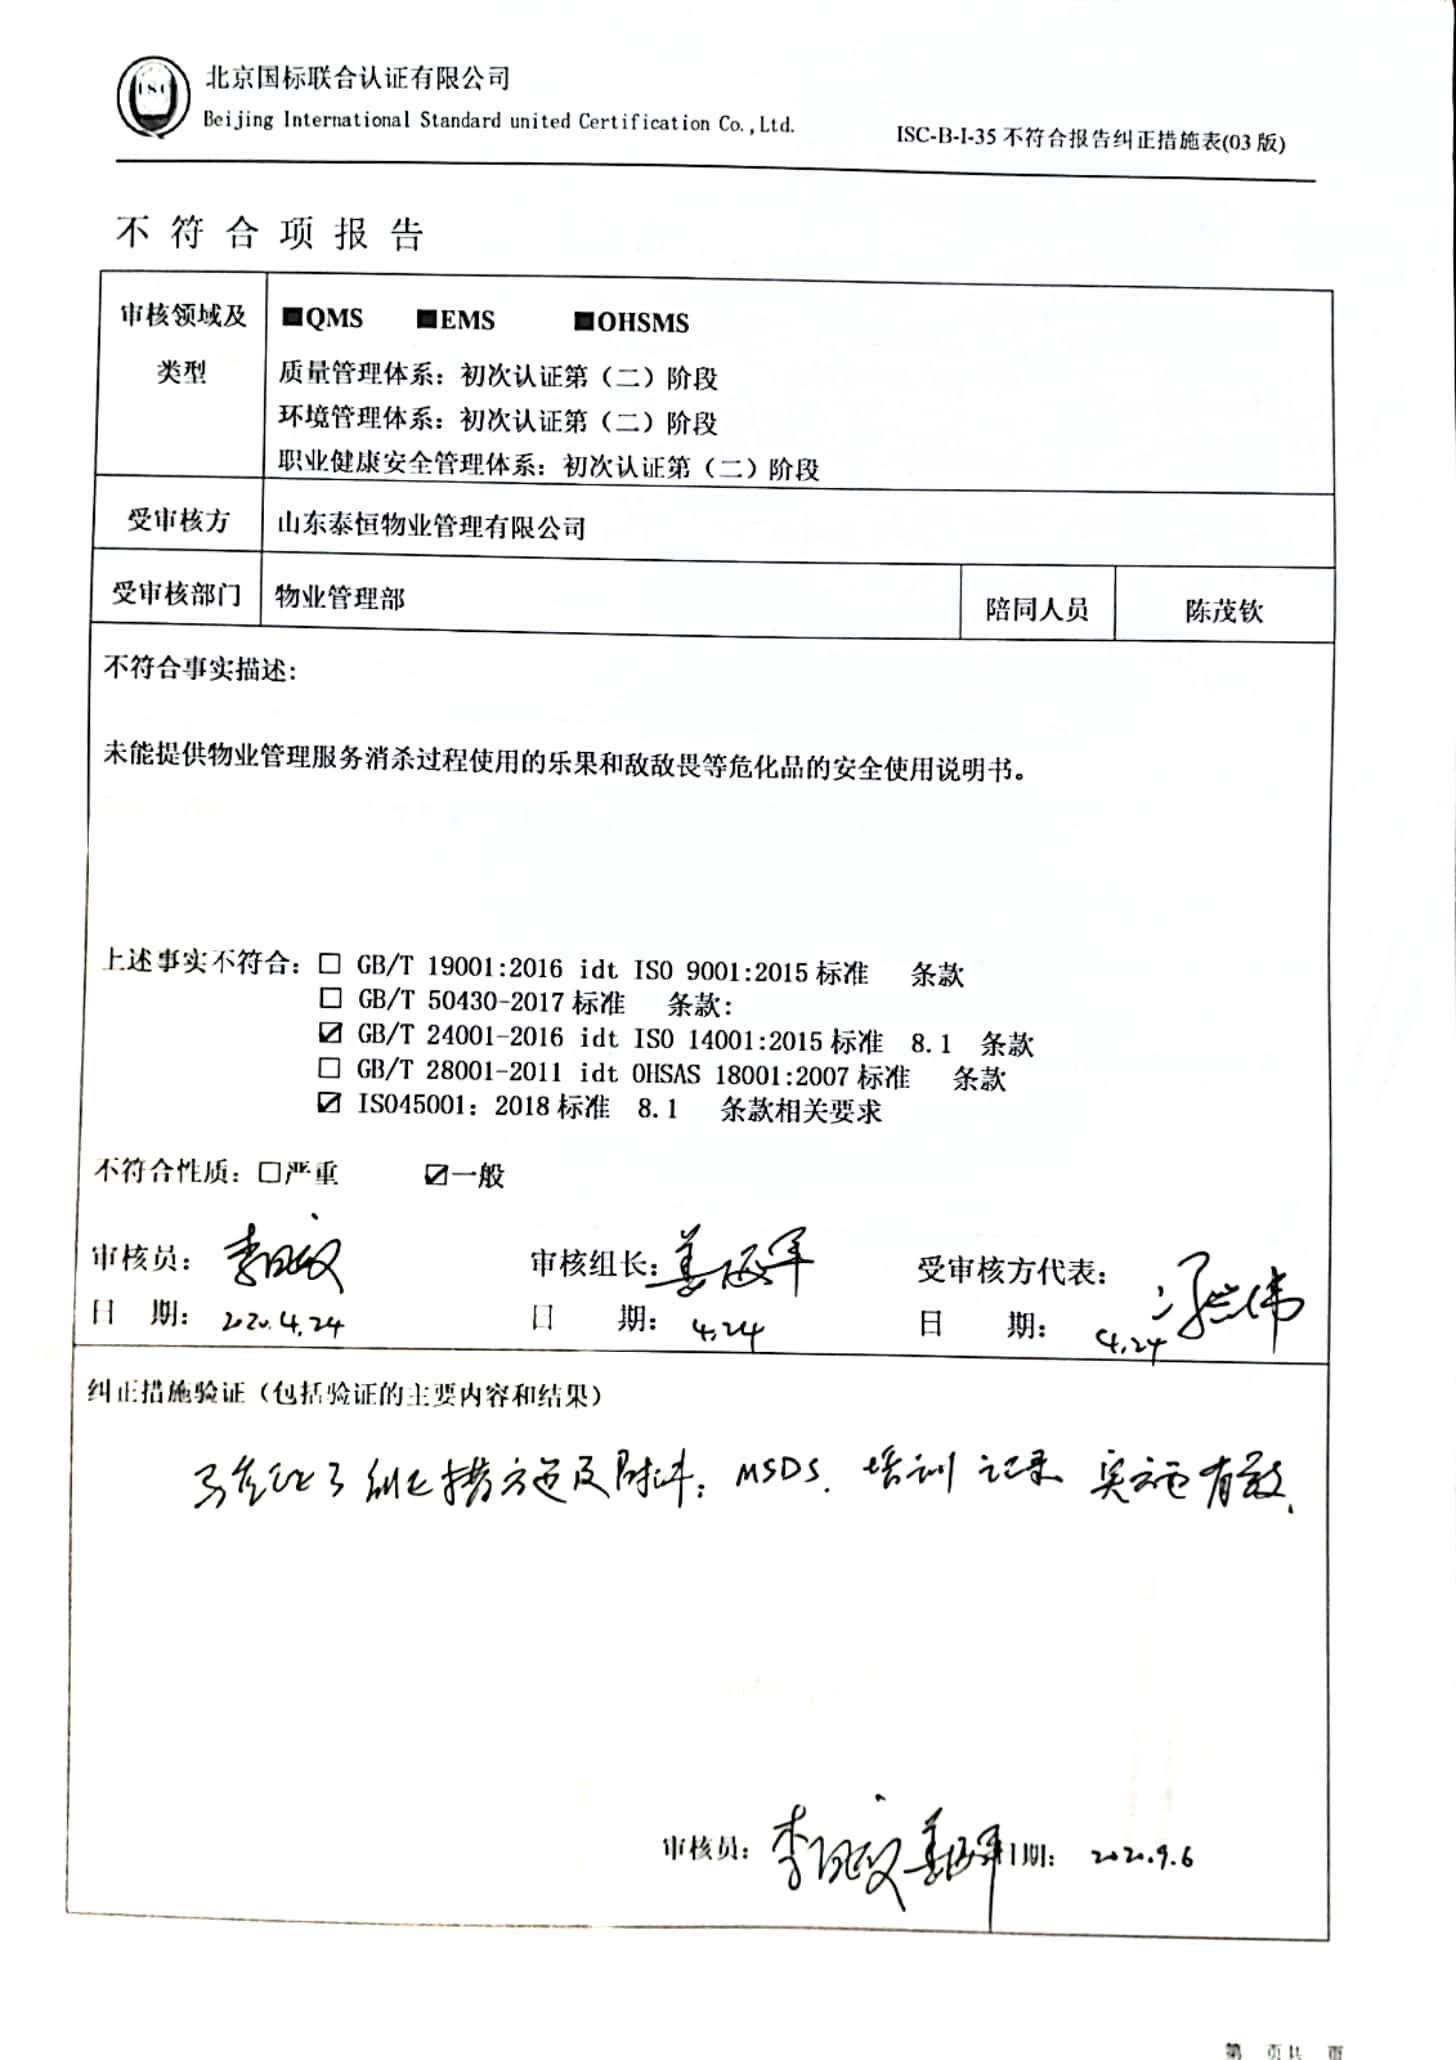 ISC
北京国标联合认证有限公司
Beijing International Standard united Certification Co.,Ltd.
ISC-B-I-35 不符合报告纠正措施表(03 版)
不符合项报告
审核领域及类型
■QMS ■EMS ■OHSMS
质量管理体系：初次认证第（二）阶段
环境管理体系：初次认证第（二）阶段
职业健康安全管理体系：初次认证第（二）阶段
受审核方 山东泰恒物业管理有限公司
受审核部门 物业管理部 陪同人员 陈茂钦
不符合事实描述：
未能提供物业管理服务消杀过程使用的乐果和敌敌畏等危化品的安全使用说明书。
上述事实不符合：□ GB/T 19001:2016 idt ISO 9001:2015 标准 条款
□ GB/T 50430-2017 标准 条款：
☑ GB/T 24001-2016 idt ISO 14001:2015 标准 8.1 条款
□ GB/T 28001-2011 idt OHSAS 18001:2007 标准 条款
☑ ISO45001：2018 标准 8.1 条款相关要求
不符合性质：□严重 ☑一般
审核员： 审核组长：姜海军 受审核方代表：
日 期：2020.4.24 日 期：4.24 日 期：4.24
纠正措施验证（包括验证的主要内容和结果）
了纠正措施及附件：MSDS、培训记录 实施有效、
审核员： 姜海军 日期：2020.9.6
第 页共 页